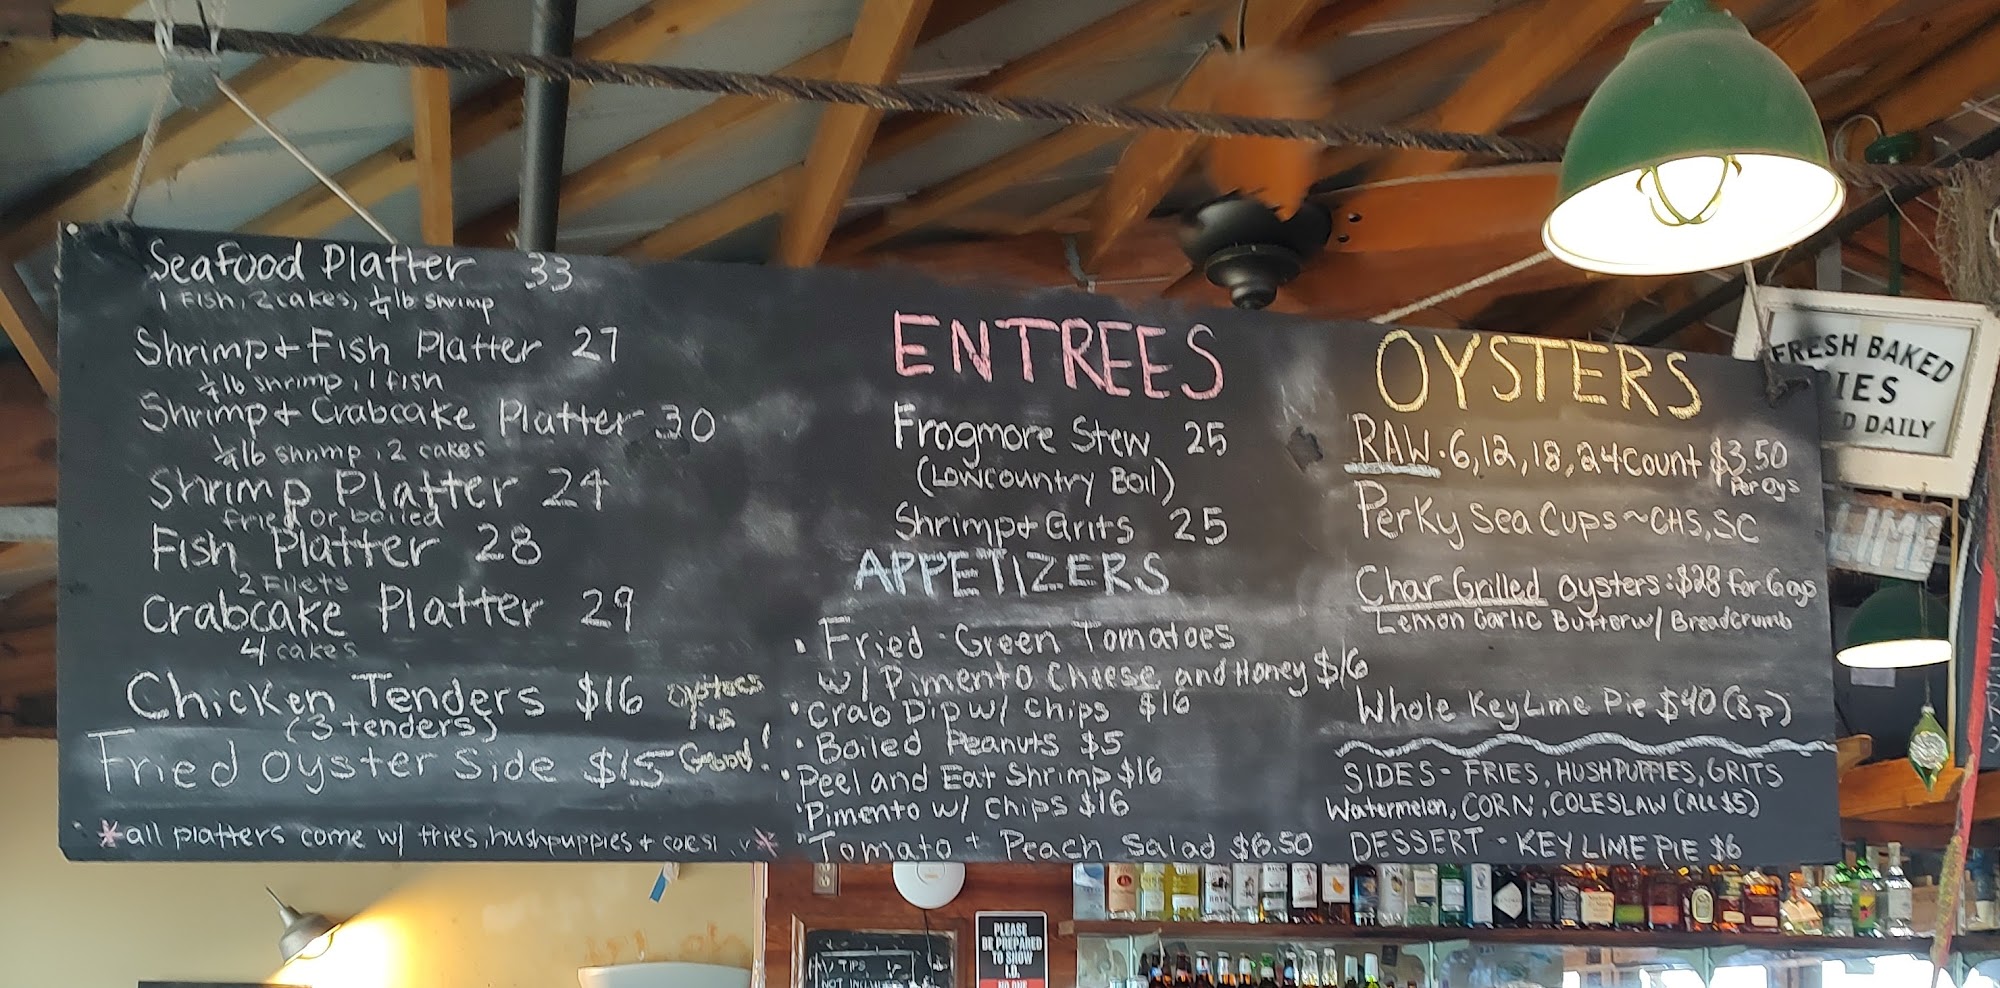 Seafood Platter 33
1 Fish, 2 cakes, 1/4 lb shrimp
Shrimp + Fish Platter 27
1/4 lb shrimp, 1 fish
Shrimp + Crabcake Platter 30
1/4 lb shrimp, 2 cakes
Shrimp Platter 24
fried or boiled
Fish Platter 28
2 Filets
Crabcake Platter 29
4 cakes
Chicken Tenders $16
(3 tenders)
Fried Oyster Side $15
Good!
*all platters come w/ fries, hushpuppies +
ENTREES
Frogmore Stew 25
(Lowcountry Boil)
Shrimp + Grits 25
APPETIZERS
• Fried Green Tomatoes
w/ Pimento Cheese and Honey $16
• Crab Dip w/ Chips $16
• Boiled Peanuts $5
• Peel and Eat Shrimp $16
• Pimento w/ Chips $16
• Tomato + Peach Salad $6.50
OYSTERS
RAW • 6, 12, 18, 24 Count $3.50
Per Oys
Perky Sea Cups ~ CHS, SC
Char Grilled Oysters: $28 For 6 oys
Lemon Garlic Butter w/ Breadcrumb
Whole Key Lime Pie $40 (8p)
SIDES - FRIES, HUSHPUPPIES, GRITS
Watermelon, CORN, COLESLAW (ALL $5)
DESSERT - KEY LIME PIE $6
FRESH BAKED
IES
D DAILY
LIME
TIPS
NOT
PLEASE
BE PREPARED
TO SHOW
I.D.
NO ONE